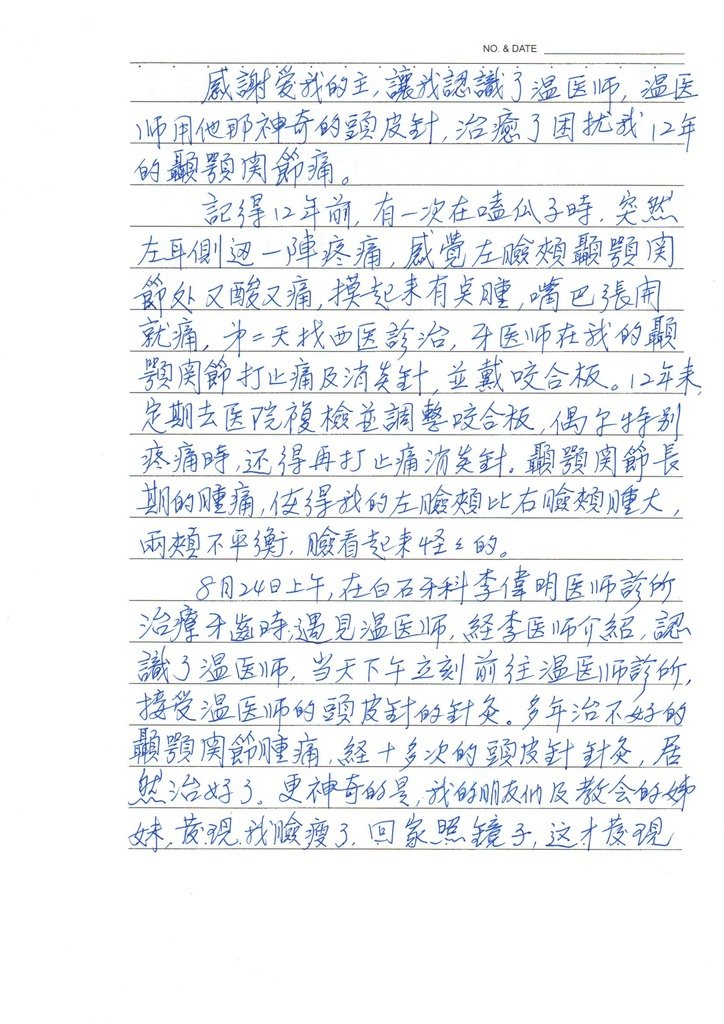 NO. & DATE
感謝愛我的主，讓我認識了温医师，温医
师用他那神奇的頭皮針，治癒了困扰我12年
的顳顎関節痛。
記得12年前，有一次在嗑瓜子時，突然
左耳側边一陣疼痛，感覺左臉頰顳顎関
節处又酸又痛，摸起来有点腫，嘴巴張開
就痛，第二天找西医診治，牙医师在我的顳
顎関節打止痛及消炎針，並戴咬合板。12年来，
定期去医院複檢並調整咬合板，偶尔特别
疼痛時，还得再打止痛消炎針。顳顎関節長
期的腫痛，使得我的左臉頰比右臉頰腫大，
兩頰不平衡，臉看起来怪々的。
8月24日上午，在白石牙科李偉明医师診所
治療牙齒時，遇見温医师，経李医师介紹，認
識了温医师，当天下午立刻前往温医师診所，
接受温医师的頭皮針的針灸。多年治不好的
顳顎関節腫痛，経十多次的頭皮針針灸，居
然治好了。更神奇的是，我的朋友们及教会的姊
妹，发現我臉瘦了，回家照镜子，这才发現